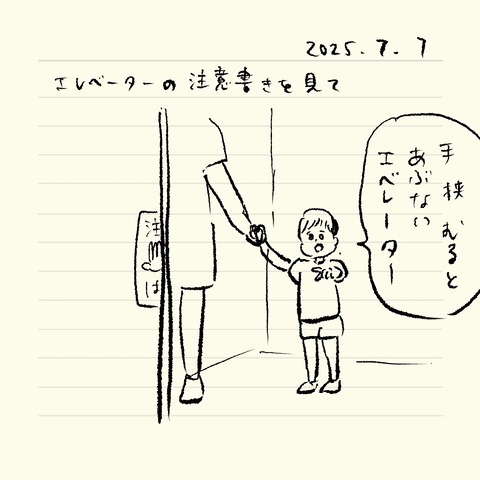 2025.7.7
エレベーターの注意書きを見て
手挟むると
あぶない
エベレーター
注
は